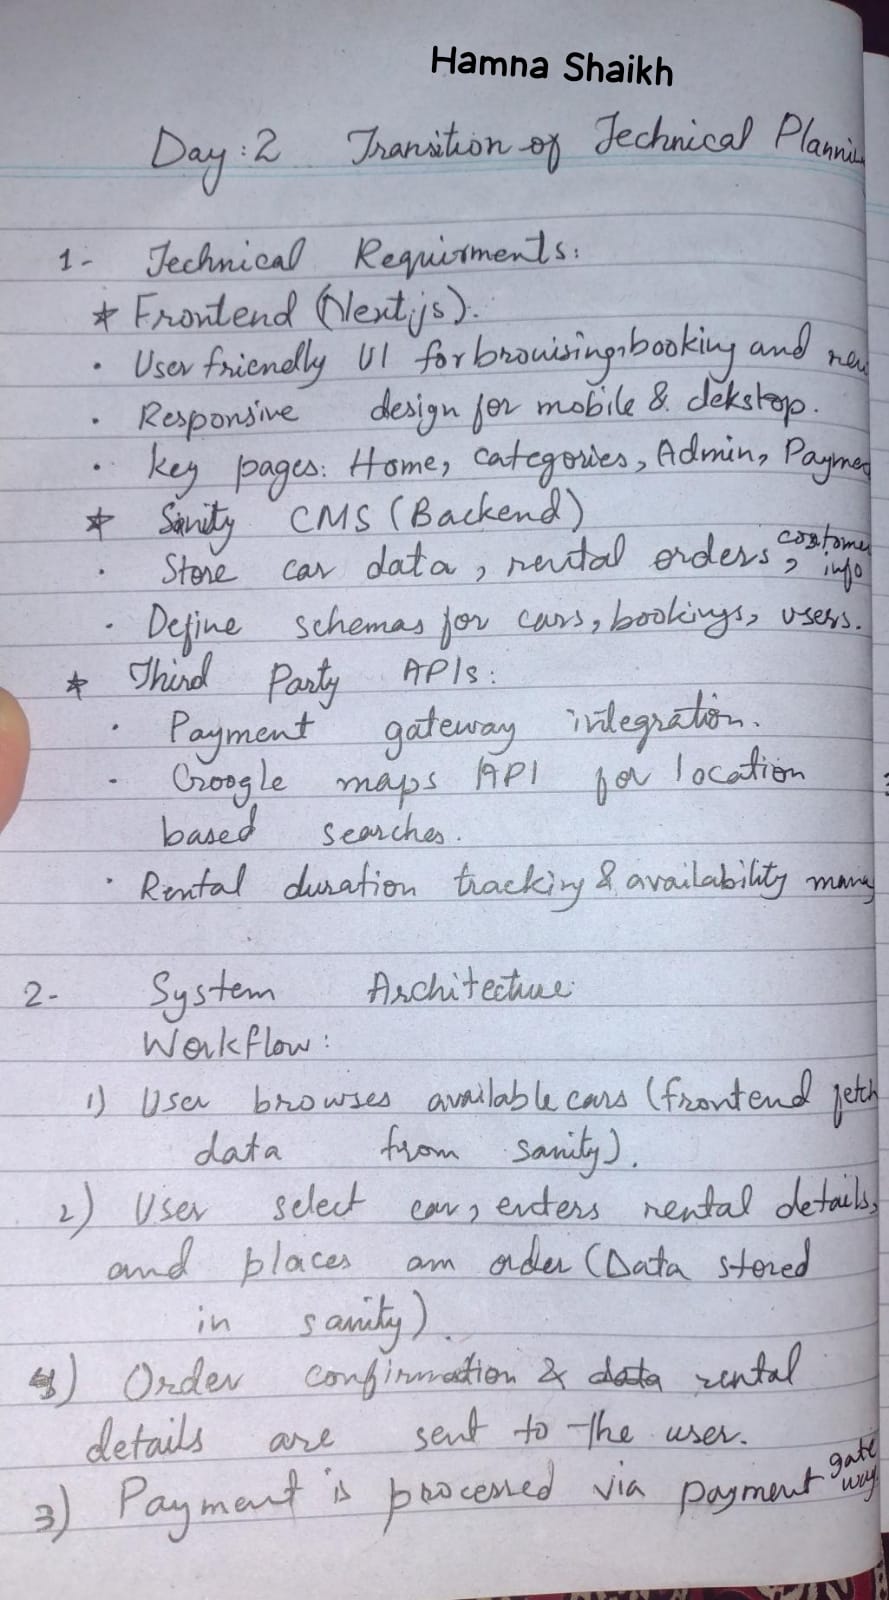 Hamna Shaikh
Day:2 Transition of Technical Planni
1- Technical Requirments:
* Frontend (Next.js).
· User friendly UI for brouising, booking and
· Responsive design for mobile & dekstop.
· key pages: Home, categories, Admin, Payme
* Sanity CMS (Backend)
· Store car data, rental orders, costome info
· Define schemas for cars, bookings, users.
* Third Party APIs:
· Payment gateway integration.
· Google maps API for location
based searches.
· Rental duration tracking & availability mana
2- System Architecture
Workflow:
1) User browses available cars (frontend fetch
data from sanity).
2) User select car, enters rental details,
and places am order (Data stored
in sanity).
4) Order confirmation & data rental
details are sent to the user.
3) Payment is processed via payment gate way.